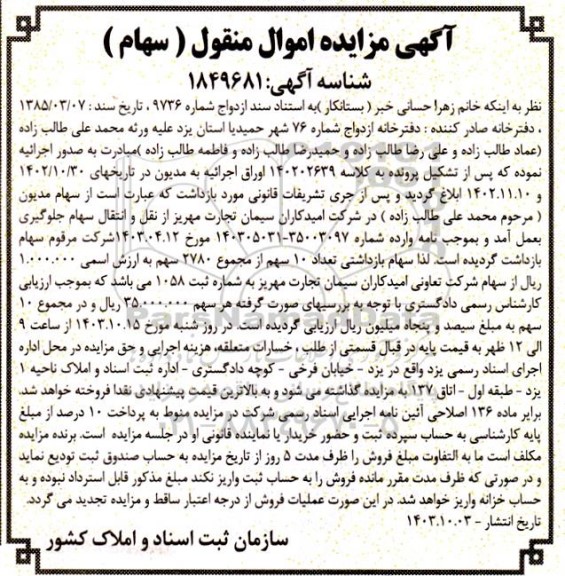 آگهی مزایده اموال منقول ( سهام )
شناسه آگهی: ۱۸۴۹۶۸۱
نظر به اینکه خانم زهرا حسانی خبر ( بستانکار )به استناد سند ازدواج شماره ۹۷۳۶ ، تاریخ سند : ۱۳۸۵/۰۳/۰۷
، دفترخانه صادر کننده : دفترخانه ازدواج شماره ۷۶ شهر حمیدیا استان یزد علیه ورثه محمد علی طالب زاده
(عماد طالب زاده و علی رضا طالب زاده و حمیدرضا طالب زاده و فاطمه طالب زاده )مبادرت به صدور اجرائیه
نموده که پس از تشکیل پرونده به کلاسه ۱۴۰۲۰۲۶۳۹ اوراق اجرائیه به مدیون در تاریخهای ۱۴۰۲/۱۰/۳۰
و ۱۴۰۲.۱۱.۱۰ ابلاغ گردید و پس از جری تشریفات قانونی مورد بازداشت که عبارت است از سهام مدیون
( مرحوم محمد علی طالب زاده ) در شرکت امیدکاران سیمان تجارت مهریز از نقل و انتقال سهام جلوگیری
بعمل آمد و بموجب نامه وارده شماره ۳۵۰۰۳۰۹۷-۱۴۰۳۰۵۰۳۱ مورخ ۱۴۰۳.۰۴.۱۲شرکت مرقوم سهام
بازداشت گردیده است. لذا سهام بازداشتی تعداد ۱۰ سهم از مجموع ۲۷۸۰ سهم به ارزش اسمی ۱.۰۰۰.۰۰۰
ریال از سهام شرکت تعاونی امیدکاران سیمان تجارت مهریز به شماره ثبت ۱۰۵۸ می باشد که بموجب ارزیابی
کارشناس رسمی دادگستری با توجه به بررسیهای صورت گرفته هر سهم ۳۵.۰۰۰.۰۰۰ ریال و در مجموع ۱۰
سهم به مبلغ سیصد و پنجاه میلیون ریال ارزیابی گردیده است. در روز شنبه مورخ ۱۴۰۳.۱۰.۱۵ از ساعت ۹
الی ۱۲ ظهر به قیمت پایه در قبال قسمتی از طلب ، خسارات متعلقه، هزینه اجرایی و حق مزایده در محل اداره
اجرای اسناد رسمی یزد واقع در یزد - خیابان فرخی - کوچه دادگستری - اداره ثبت اسناد و املاک ناحیه ۱
یزد - طبقه اول - اتاق۱۳۷ به مزایده گذاشته می شود و به بالاترین قیمت پیشنهادی نقدا فروخته خواهد شد.
برابر ماده ۱۳۶ اصلاحی آئین نامه اجرایی اسناد رسمی شرکت در مزایده منوط به پرداخت ۱۰ درصد از مبلغ
پایه کارشناسی به حساب سپرده ثبت و حضور خریدار یا نماینده قانونی او در جلسه مزایده است. برنده مزایده
مکلف است ما به التفاوت مبلغ فروش را ظرف مدت ۵ روز از تاریخ مزایده به حساب صندوق ثبت تودیع نماید
و در صورتی که ظرف مدت مقرر مانده فروش را به حساب ثبت واریز نکند مبلغ مذکور قابل استرداد نبوده و به
حساب خزانه واریز خواهد شد. در این صورت عملیات فروش از درجه اعتبار ساقط و مزایده تجدید می گردد.
تاریخ انتشار - ۱۴۰۳.۱۰.۰۳
سازمان ثبت اسناد و املاک کشور
ParsNamadData
۰۲۱-۸۸۳۴۹۶۷۰-۵